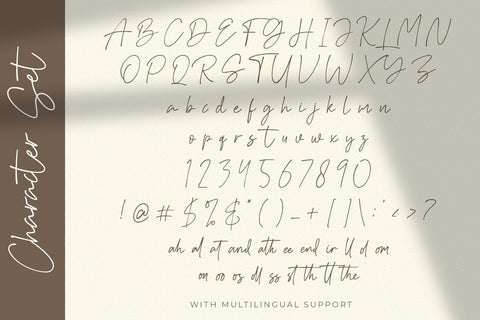 Character Set
A B C D E F G H I J K L M N
O P Q R S T U V W X Y Z
a b c d e f g h i j k l m n
o p q r s t u v w x y z
1 2 3 4 5 6 7 8 9 0
! @ # $ % & * ( ) _ + [ ] \ : ' < > ?
ah al at and ath ee end ir ll d om
on oo os dl ss st th tt the
WITH MULTILINGUAL SUPPORT